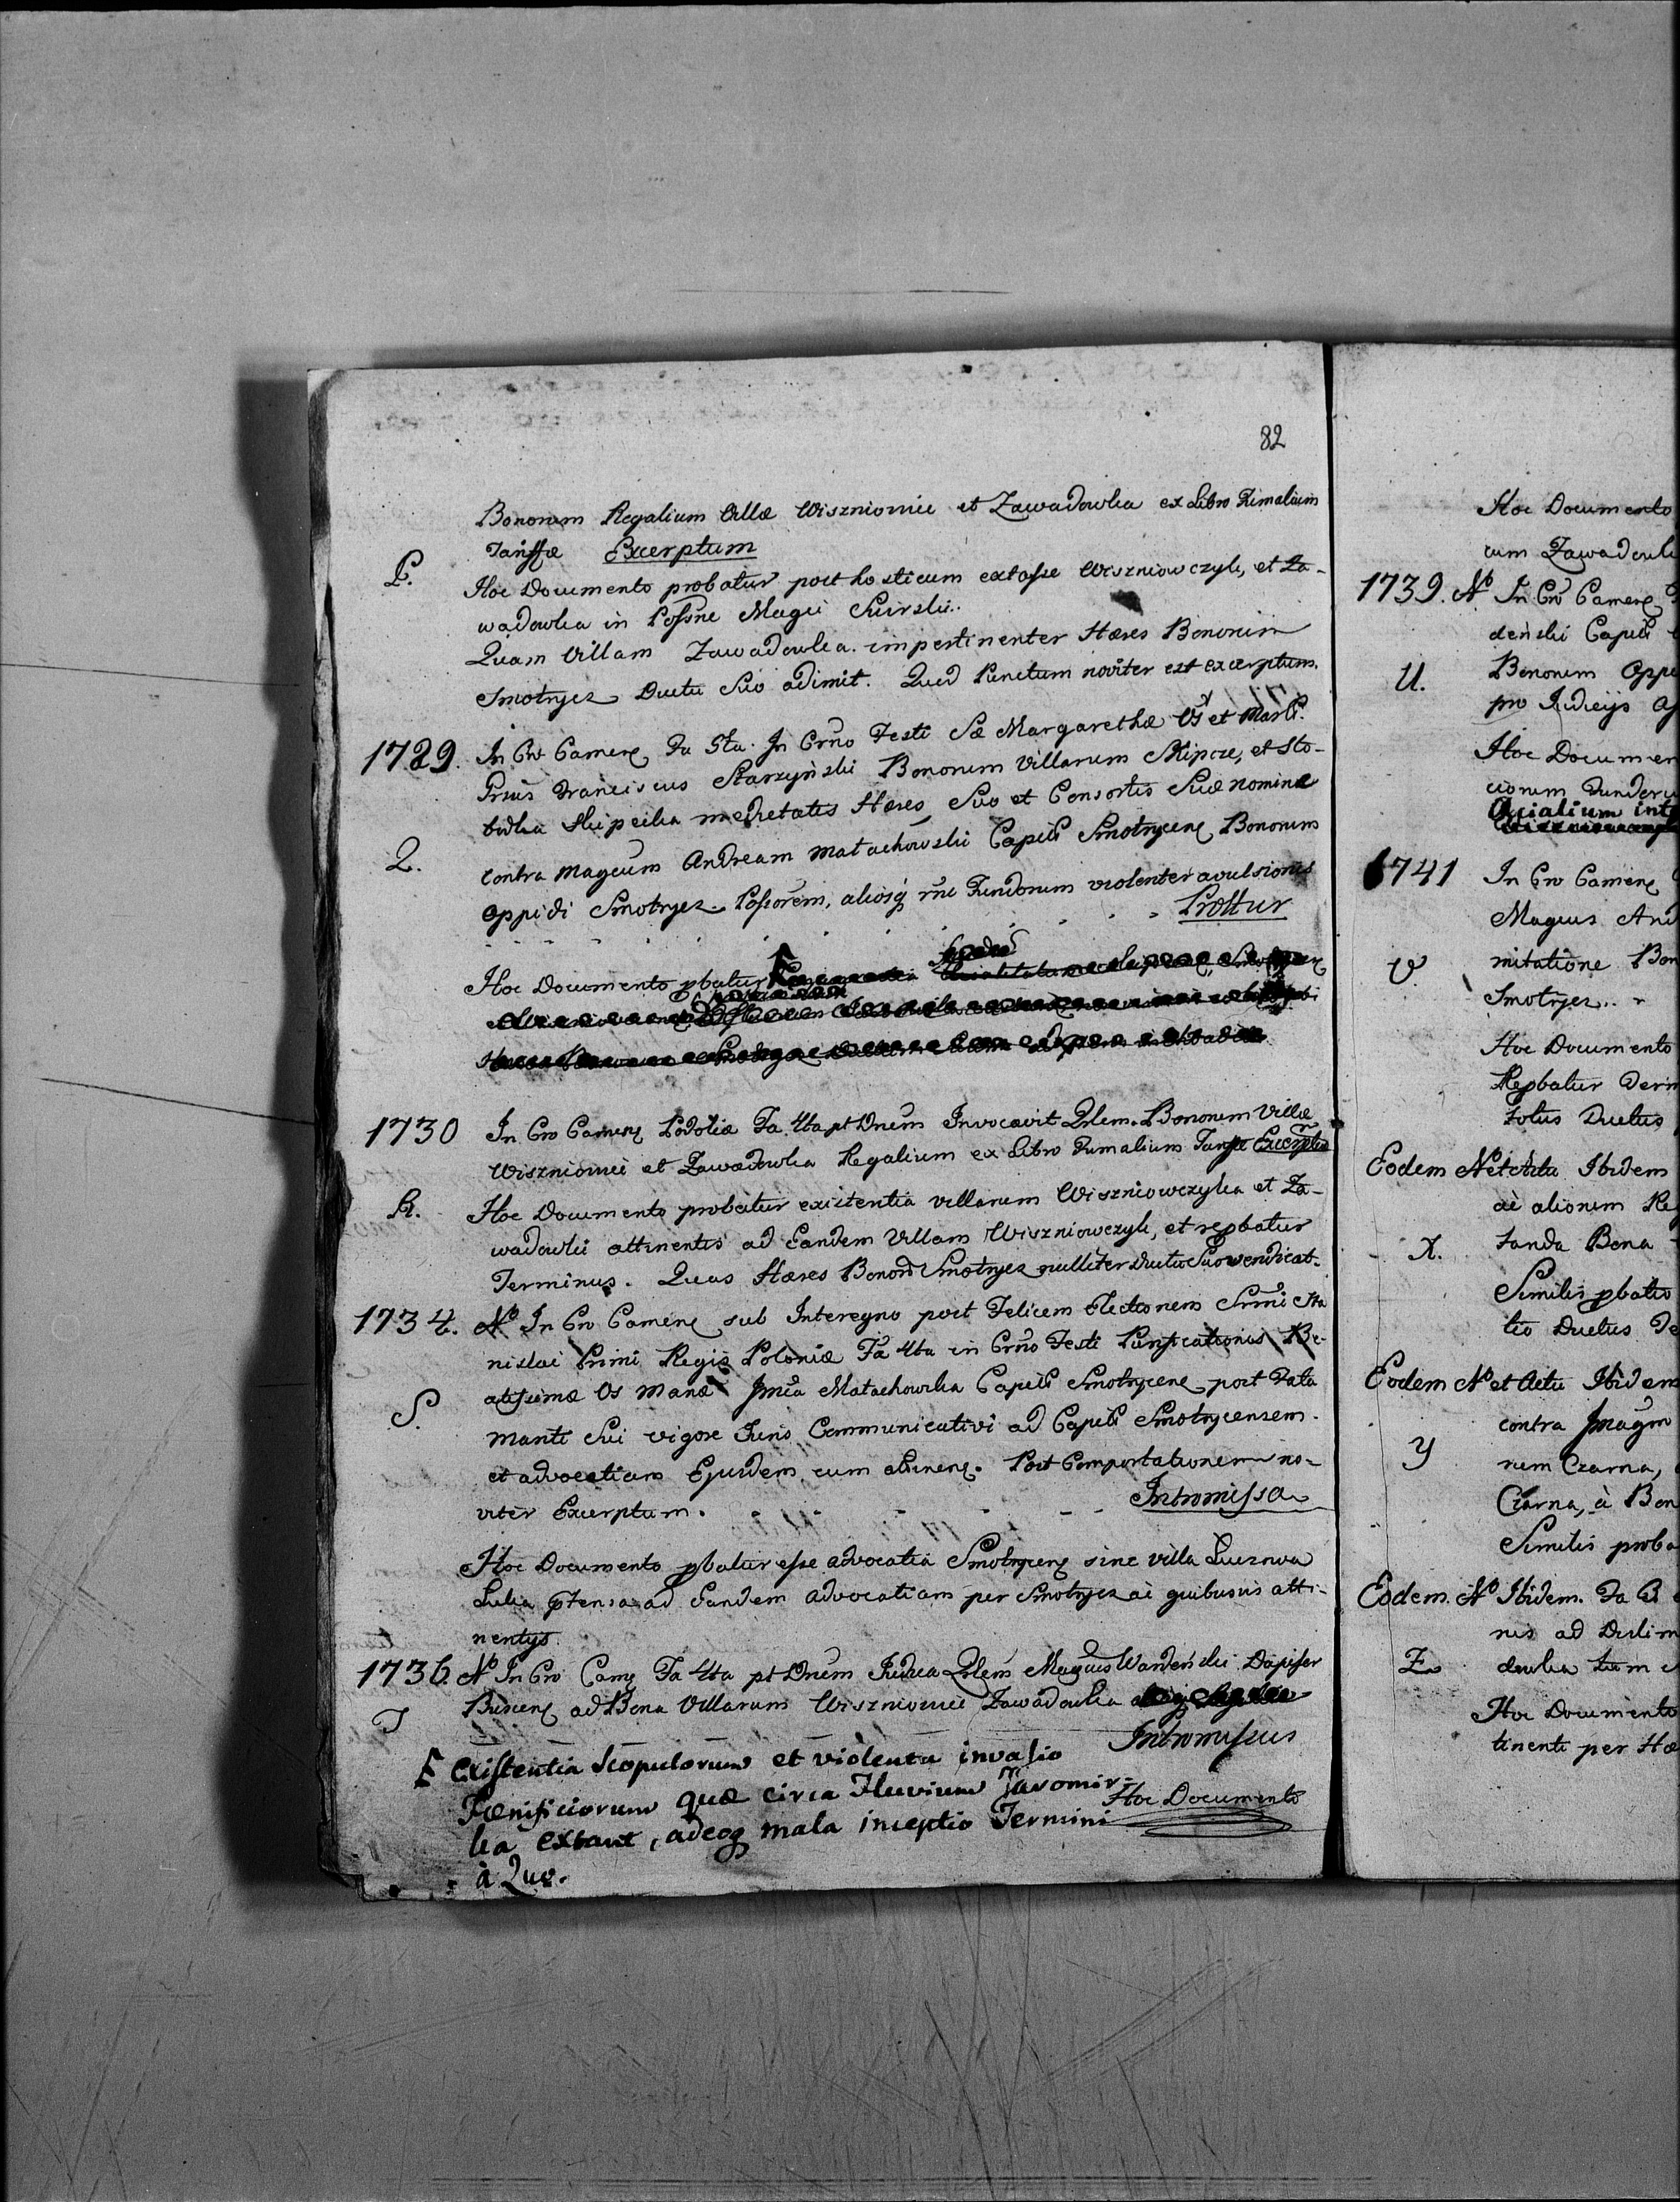 82
Bonorum Regalium Villæ Wiszniowie et Zawadowka ex Libro Fumalium
Tariffæ Excerptum
P. Hoc Documento probatur post hosticum extasse Wiszniowczyk, et Za-
wadowka in Possne Magci Swirski.
Quam Villam Zawadowka impertinenter Hæres Bonorum
Smotrycz Ductu Suo adimit. Quod Punctum noviter est excerptum.
1729. In Cro Camene Fa 5ta In Crno Festi Sæ Margarethæ V et Mart.
Grsus Franciscus Starzyński Bonorum Villarum Skipcze, et Sto-
budka Skipecka medietatis Hæres, Suo et Consortis Suæ nomine
Q. contra Magcum Andream Małachowski Capeu Smotrycen Bonorum
Oppidi Smotrycz Possorem, aliosq rne Fundorum violenter avulsionis
Prottur
Hoc Documento pbatur
1730 In Cro Camene Podoliæ Fa 4ta pt Dnem Invocavit Qdlem. Bonorum Villæ
Wiszniowie et Zawadowka Regalium ex Libro Fumalium Tariffæ Excerptum
R. Hoc Documento probatur existentia villarum Wiszniowczyka et Za-
wadowki attinentis ad Eandem Villam Wiszniowczyk, et repbatur
Terminus. Quas Hæres Bonor Smotrycz nulliter Ductu Suo vendicat.
1734. No In Cro Camene sub Interegno post Felicem Electionem Srmi Sta
nislai Primi Regis Poloniæ Fa 4ta in Crno Festi Purificationis Be-
atissimæ Vs Mariæ Jmca Małachowska Capeu Smotrycen post Fata
S. Mariti Sui vigore Juris Communicativi ad Capeu Smotrycensem
et advocatiam Ejusdem cum attinen. Post Comportationem no-
viter Excerptum. Intromissa
Hoc Documento pbatur esse advocatia Smotrycen sine villa
ptensa ad Eandem advocatiam per Smotrycz ac quibusvis atti-
nentys.
1736. No In Cro Came Fa 4ta pt Dnem Judica Qdlem Magcus Wandeński Dapifer
T Buscen ad Bona Villarum Wiszniowie Zawadowka
Intromissus
Existentia Scopulorum et violenta invasio
Fænificiorum quæ circa Fluvium Jaromir-
ka extant, adeoq mala inceptio Termini
à Quo.
Hoc Documento
Hoc Documento
cum Zawadowk
1739. No In Cro Camene
deński Capeu
U. Bonorum Opp
pro Judicijs
Hoc Documen
cionum
Gcialium int
1741 In Cro Camene
Magcus And
V. mitatione Bon
Smotrycz
Hoc Documento
Repbatur Term
totus Ductus
Eodem No et Actu Ibidem
ac alionum Re
X. tanda Bona
Similis pbatio
tio Ductus Te
Eodem No et Actu Ibidem
contra Jmagm
Y rum Czarna,
Czarna, à Bon
Similis proba
Eodem No Ibidem. Fa
nis ad Delim
Z dowka tum
Hoc Documento
tinenti per Hæ